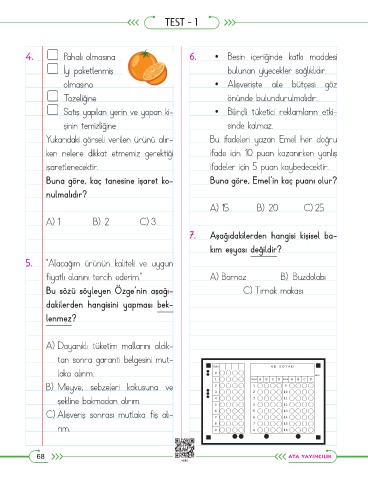 TEST - 1
4.
Pahalı olmasına
İyi paketlenmiş
olmasına
Tazeliğine
Satış yapılan yerin ve yapan ki-
şinin temizliğine
Yukarıdaki görseli verilen ürünü alır-
ken nelere dikkat etmemiz gerektiği
işaretlenecektir.
Buna göre, kaç tanesine işaret ko-
nulmalıdır?
A) 1 B) 2 C) 3
5. "Alacağım ürünün kaliteli ve uygun
fiyatlı olanını tercih ederim."
Bu sözü söyleyen Özge'nin aşağı-
dakilerden hangisini yapması bek-
lenmez?
A) Dayanıklı tüketim mallarını aldık-
tan sonra garanti belgesini mut-
laka alırım.
B) Meyve, sebzeleri kokusuna ve
şekline bakmadan alırım.
C) Alışveriş sonrası mutlaka fiş alı-
rım.
6. • Besin içeriğinde katkı maddesi
bulunan yiyecekler sağlıklıdır.
• Alışverişte aile bütçesi göz
önünde bulundurulmalıdır.
• Bilinçli tüketici reklamların etki-
sinde kalmaz.
Bu ifadeleri yazan Emel her doğru
ifade için 10 puan kazanırken yanlış
ifadeler için 5 puan kaybedecektir.
Buna göre, Emel'in kaç puanı olur?
A) 15 B) 20 C) 25
7. Aşağıdakilerden hangisi kişisel ba-
kım eşyası değildir?
A) Bornoz B) Buzdolabı
C) Tırnak makası
AD SOYAD
68
ATA YAYINCILIK